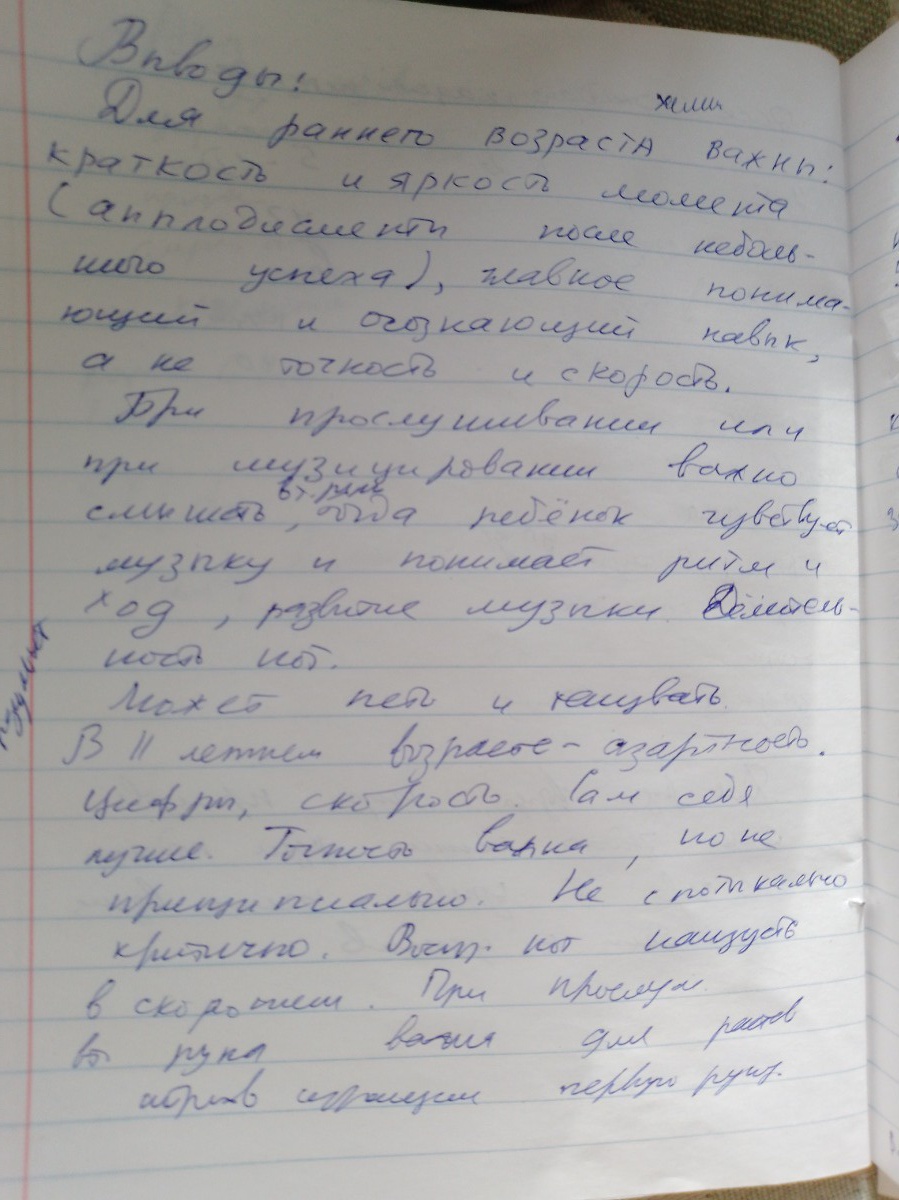 Выводы:
Для раннего возраста важны:
краткость и яркость момента
(апплодисменты после неболь-
шого успеха), главное понима-
ющий и осознающий навык,
а не точность и скорость.
При прослушивании или
при музицировании важно
слышать, ребёнок чувствует
музыку и понимает ритм и
ход, развитие музыки. Длитель-
ность нот.
Может петь и танцевать.
В 11 летнем возрасте - азартность.
Цифры, скорость. Сам себя
лучше. Точность важна, но не
принципиально. Не
критично. нот наизусть
в скорочтении. При прослуш.
вт рука важна для
играющим первую рук.